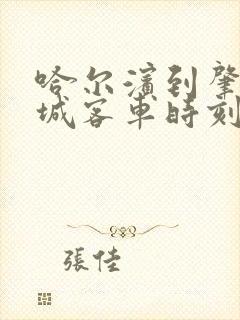 哈尔濱到肇
城客車時刻
張佳